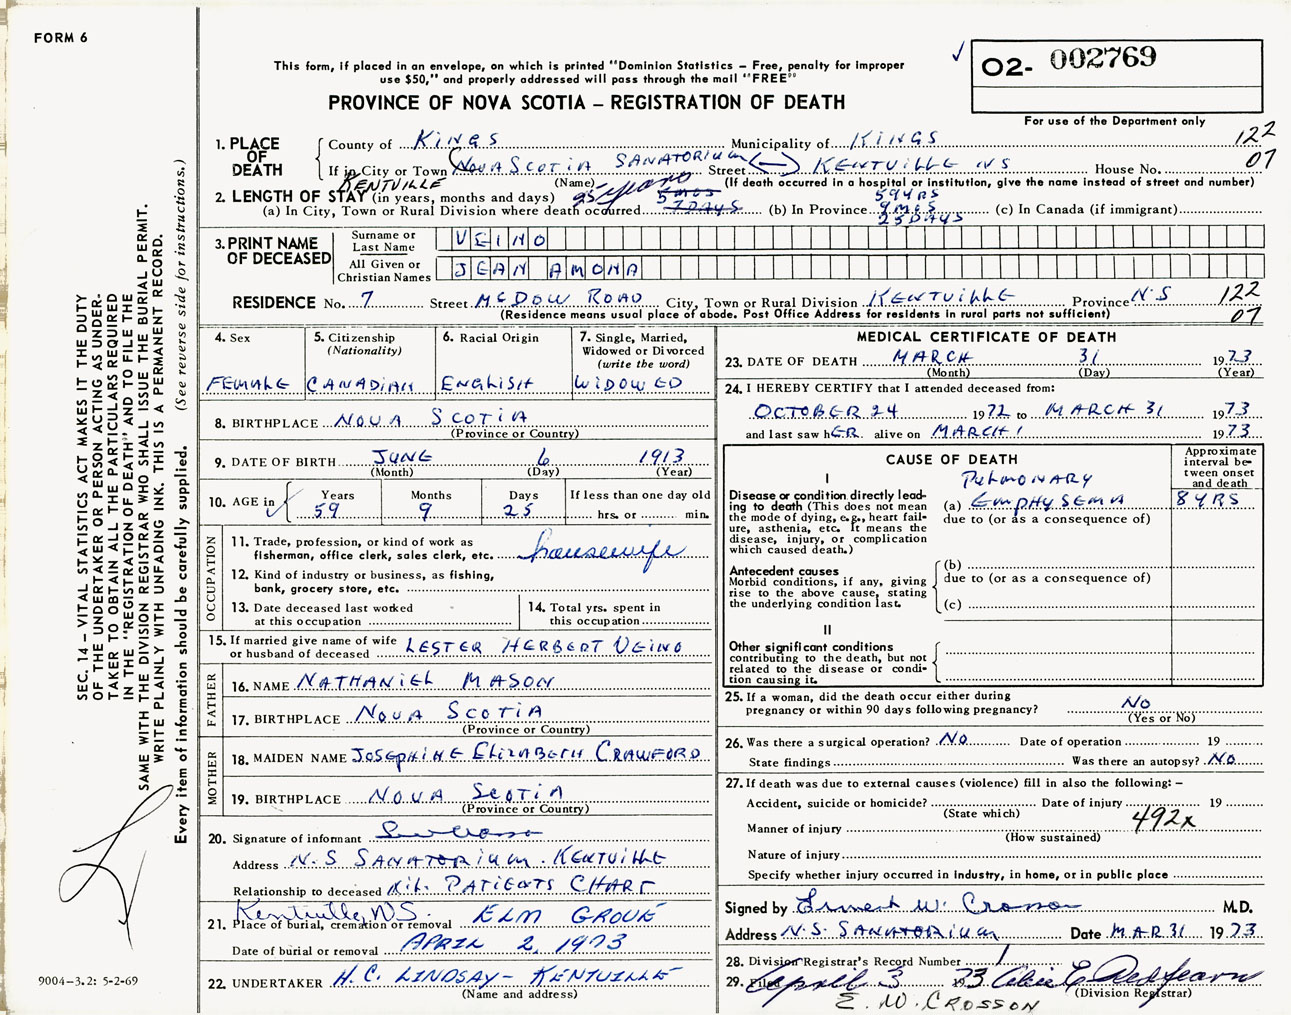 FORM 6
This form, if placed in an envelope, on which is printed "Dominion Statistics – Free, penalty for improper
use $50," and properly addressed will pass through the mail "FREE"
PROVINCE OF NOVA SCOTIA – REGISTRATION OF DEATH
O2- 002769
For use of the Department only
1. PLACE OF DEATH
County of KINGS Municipality of KINGS 122
If in City or Town NOVA SCOTIA SANATORIUM Street KENTVILLE NS House No. 07
KENTVILLE (Name) (If death occurred in a hospital or institution, give the name instead of street and number)
2. LENGTH OF STAY (in years, months and days) 25 years 5 MOS 59 YRS
(a) In City, Town or Rural Division where death occurred 7 DAYS (b) In Province 9 MOS (c) In Canada (if immigrant)
25 DAYS
3. PRINT NAME OF DECEASED
Surname or Last Name VEINO
All Given or Christian Names JEAN AMONA
RESIDENCE No. 7 Street McDOW ROAD City, Town or Rural Division KENTVILLE Province N.S 122
(Residence means usual place of abode. Post Office Address for residents in rural parts not sufficient) 07
4. Sex
FEMALE
5. Citizenship
(Nationality)
CANADIAN
6. Racial Origin
ENGLISH
7. Single, Married,
Widowed or Divorced
(write the word)
WIDOWED
8. BIRTHPLACE NOVA SCOTIA
(Province or Country)
9. DATE OF BIRTH JUNE 6 1913
(Month) (Day) (Year)
10. AGE in Years Months Days If less than one day old
59 9 25 hrs. or min.
OCCUPATION
11. Trade, profession, or kind of work as
fisherman, office clerk, sales clerk, etc. housewife
12. Kind of industry or business, as fishing,
bank, grocery store, etc.
13. Date deceased last worked
at this occupation
14. Total yrs. spent in
this occupation
15. If married give name of wife
or husband of deceased LESTER HERBERT VEINO
FATHER
16. NAME NATHANIEL MASON
17. BIRTHPLACE NOVA SCOTIA
(Province or Country)
MOTHER
18. MAIDEN NAME JOSEPHINE ELIZABETH CRAWFORD
19. BIRTHPLACE NOVA SCOTIA
(Province or Country)
20. Signature of informant
Address N.S SANATORIUM. KENTVILLE
Relationship to deceased Nil. PATIENTS CHART
Kentville, N.S.
21. Place of burial, cremation or removal ELM GROVE
Date of burial or removal APRIL 2, 1973
22. UNDERTAKER H.C. LINDSAY – KENTVILLE
(Name and address)
MEDICAL CERTIFICATE OF DEATH
23. DATE OF DEATH MARCH 31 1973
(Month) (Day) (Year)
24. I HEREBY CERTIFY that I attended deceased from:
OCTOBER 24 1972 to MARCH 31 1973
and last saw hER alive on MARCH 1 1973
CAUSE OF DEATH
Approximate
interval be-
tween onset
and death
I
Disease or condition directly lead-
ing to death (This does not
mean the mode of dying, e.g., heart fail-
ure, asthenia, etc. It means the
disease, injury, or complication
which caused death.)
PULMONARY
(a) EMPHYSEMA 8 YRS
due to (or as a consequence of)
Antecedent causes
Morbid conditions, if any, giving
rise to the above cause, stating
the underlying condition last.
(b)
due to (or as a consequence of)
(c)
II
Other significant conditions
contributing to the death, but not
related to the disease or condi-
tion causing it.
25. If a woman, did the death occur either during
pregnancy or within 90 days following pregnancy? NO
(Yes or No)
26. Was there a surgical operation? NO Date of operation 19
State findings Was there an autopsy? NO
27. If death was due to external causes (violence) fill in also the following: –
Accident, suicide or homicide? Date of injury 19
(State which)
Manner of injury 492x
(How sustained)
Nature of injury
Specify whether injury occurred in industry, in home, or in public place
Signed by Ernest W. Crosson M.D.
Address N.S. SANATORIUM Date MAR 31 1973
28. Division Registrar's Record Number 1
29. Filed April 3 1973 Alice E. Redfearn
(Division Registrar)
E. W. CROSSON
SEC. 14 – VITAL STATISTICS ACT MAKES IT THE DUTY
OF THE UNDERTAKER OR PERSON ACTING AS UNDER-
TAKER TO OBTAIN ALL THE PARTICULARS REQUIRED
IN THE "REGISTRATION OF DEATH" AND TO FILE THE
SAME WITH THE DIVISION REGISTRAR WHO SHALL ISSUE THE BURIAL PERMIT.
WRITE PLAINLY WITH UNFADING INK. THIS IS A PERMANENT RECORD.
Every item of information should be carefully supplied. (See reverse side for instructions.)
9004-3.2: 5-2-69